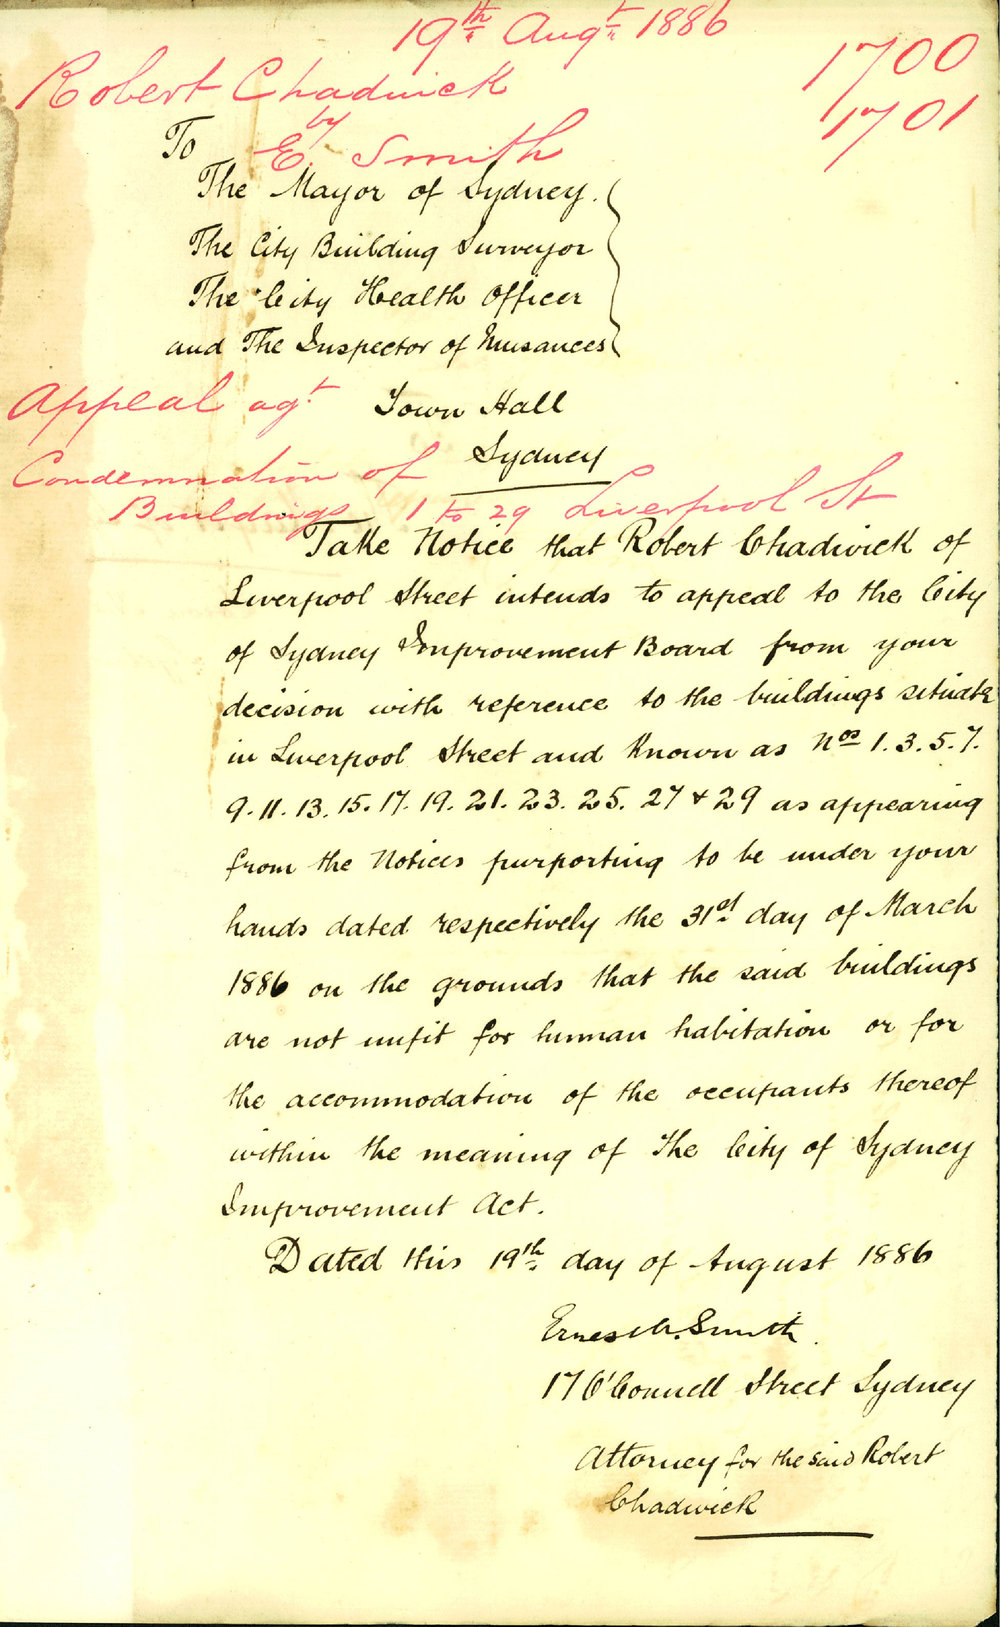 19th Augt 1886
1700
Robert Chadwick
1701
by
To
E. Smith
The Mayor of Sydney.
The City Building Surveyor
The City Health Officer
and The Inspector of Nuisances
Appeal agt
Town Hall
Sydney
Condemnation of
Buildings 1 to 29 Liverpool St
Take Notice that Robert Chadwick of
Liverpool Street intends to appeal to the City
of Sydney Improvement Board from your
decision with reference to the buildings situate
in Liverpool Street and known as Nos 1. 3. 5. 7.
9. 11. 13. 15. 17. 19. 21. 23. 25. 27 & 29 as appearing
from the Notices purporting to be under your
hands dated respectively the 31st day of March
1886 on the grounds that the said buildings
are not unfit for human habitation or for
the accommodation of the occupants thereof
within the meaning of The City of Sydney
Improvement Act.
Dated this 19th day of August 1886
Smith
17 O'Connell Street Sydney
Attorney for the said Robert
Chadwick